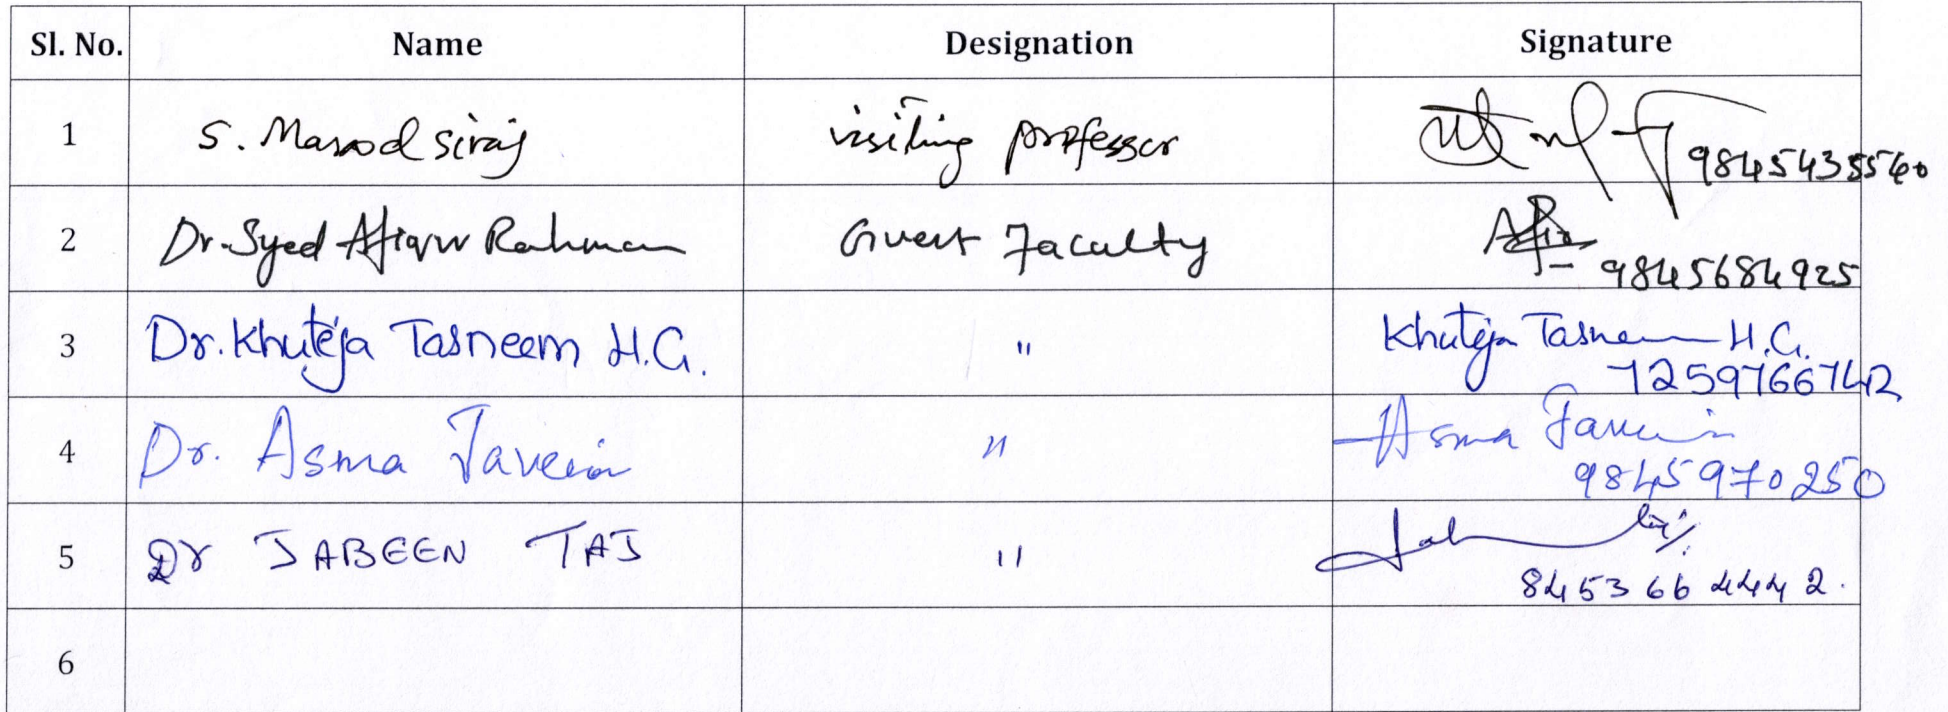 Sl. No. Name Designation Signature
1 S. Masood Siraj visiting professor 9845435560
2 Dr. Syed Atiqur Rahman Guest Faculty 9845684925
3 Dr. Khuteja Tasneem H.G. " Khuteja Tasneem H.G.
7259766742
4 Dr. Asma Javein " Asma Javein
9845970250
5 Dr JABEEN TAJ "
8453664442.
6